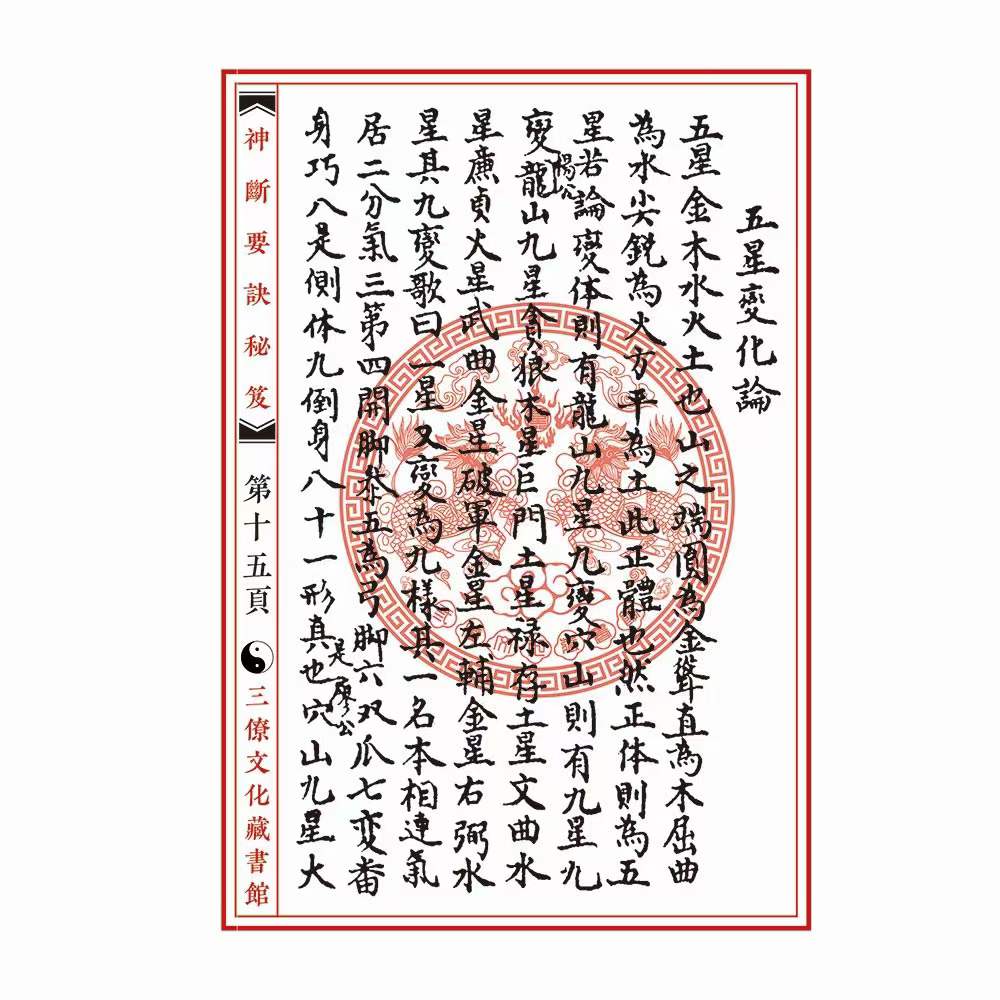 五星變化論
五星金木水火土也山之端圓為金聳直為木屈曲
為水尖銳為火方平為土此正體也然正体則為五
星若論變体則有龍山九星九變穴山則有九星九
楊公
變龍山九星貪狼木星巨門土星禄存土星文曲水
星廉貞火星武曲金星破軍金星左輔金星右弼水
星其九變歌曰一星又變為九樣其一名本相連氣
居二分氣三第四開脚叅五為弓脚六双爪七变番
身巧八是側体九倒身八十一形真也穴山九星火
是廖公
神斷要訣秘笈
第十五頁
三僚文化藏書館